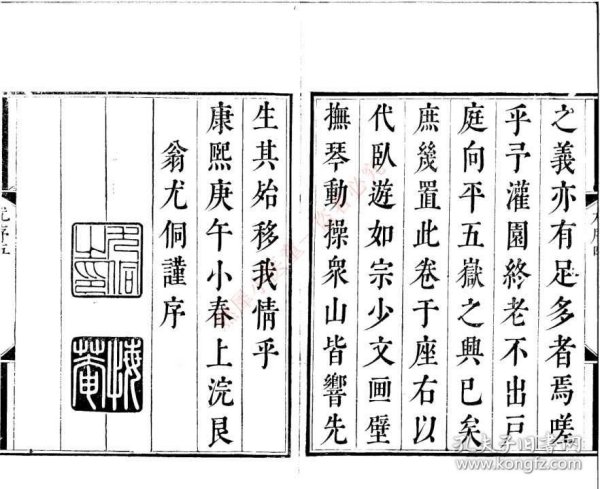 之義亦有足多者焉嗟
乎予灌園終老不出戸
庭向平五嶽之興已矣
庶幾置此卷于座右以
代臥遊如宗少文画壁
撫琴動操衆山皆響先
生其始移我情乎
康熙庚午小春上浣艮
翁尤侗謹序
尤侗之印
悔菴
孔夫子旧书网
www.kongfz.com